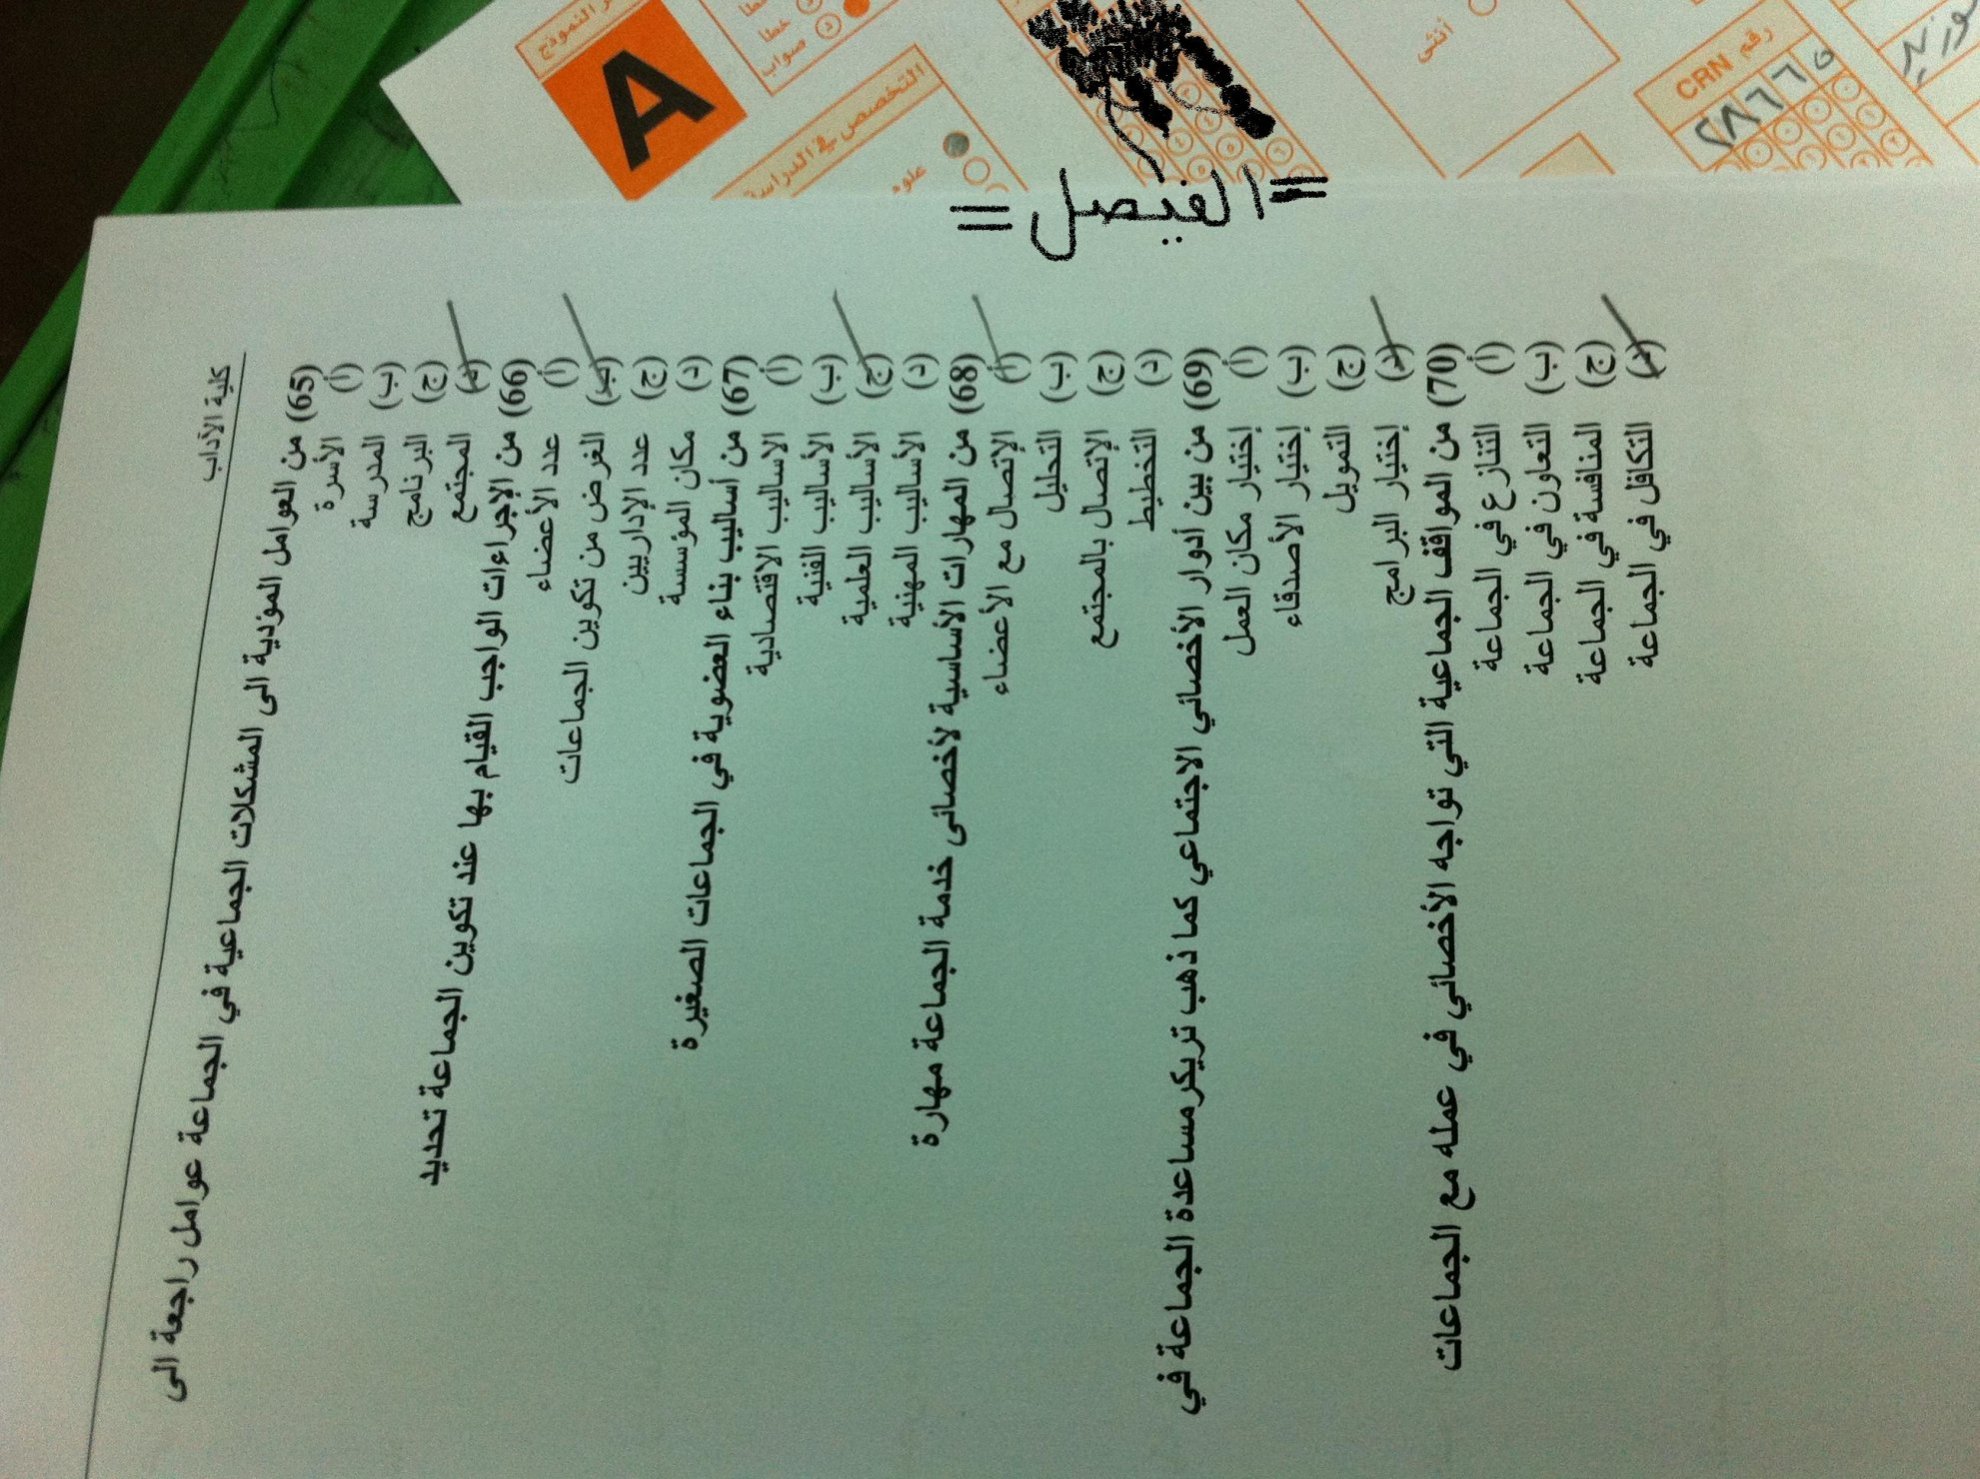 كلية الآداب
(65) من العوامل المؤدية الى المشكلات الجماعية في الجماعة عوامل راجعة الى
(أ) الأسرة
(ب) المدرسة
(ج) البرنامج
(د) المجتمع
(66) من الإجراءات الواجب القيام بها عند تكوين الجماعة تحديد
(أ) عدد الأعضاء
(ب) الغرض من تكوين الجماعات
(ج) عدد الإداريين
(د) مكان المؤسسة
(67) من أساليب بناء العضوية في الجماعات الصغيرة
(أ) الاساليب الاقتصادية
(ب) الأساليب الفنية
(ج) الأساليب العلمية
(د) الأساليب المهنية
(68) من المهارات الأساسية لأخصائى خدمة الجماعة مهارة
(أ) الإتصال مع الأعضاء
(ب) التحليل
(ج) الإتصال بالمجتمع
(د) التخطيط
(69) من بين أدوار الأخصائي الاجتماعي كما ذهب تريكرمساعدة الجماعة في
(أ) إختيار مكان العمل
(ب) إختيار الأصدقاء
(ج) التمويل
(د) إختيار البرامج
(70) من المواقف الجماعية التي تواجه الأخصائي في عمله مع الجماعات
(أ) التنازع في الجماعة
(ب) التعاون في الجماعة
(ج) المنافسة في الجماعة
(د) التكافل في الجماعة
=الفيصل=
النموذج
A
خطا
صواب
التخصص في الدراسة
علوم
أنثى
رقم CRN
٢٨٦٦٥